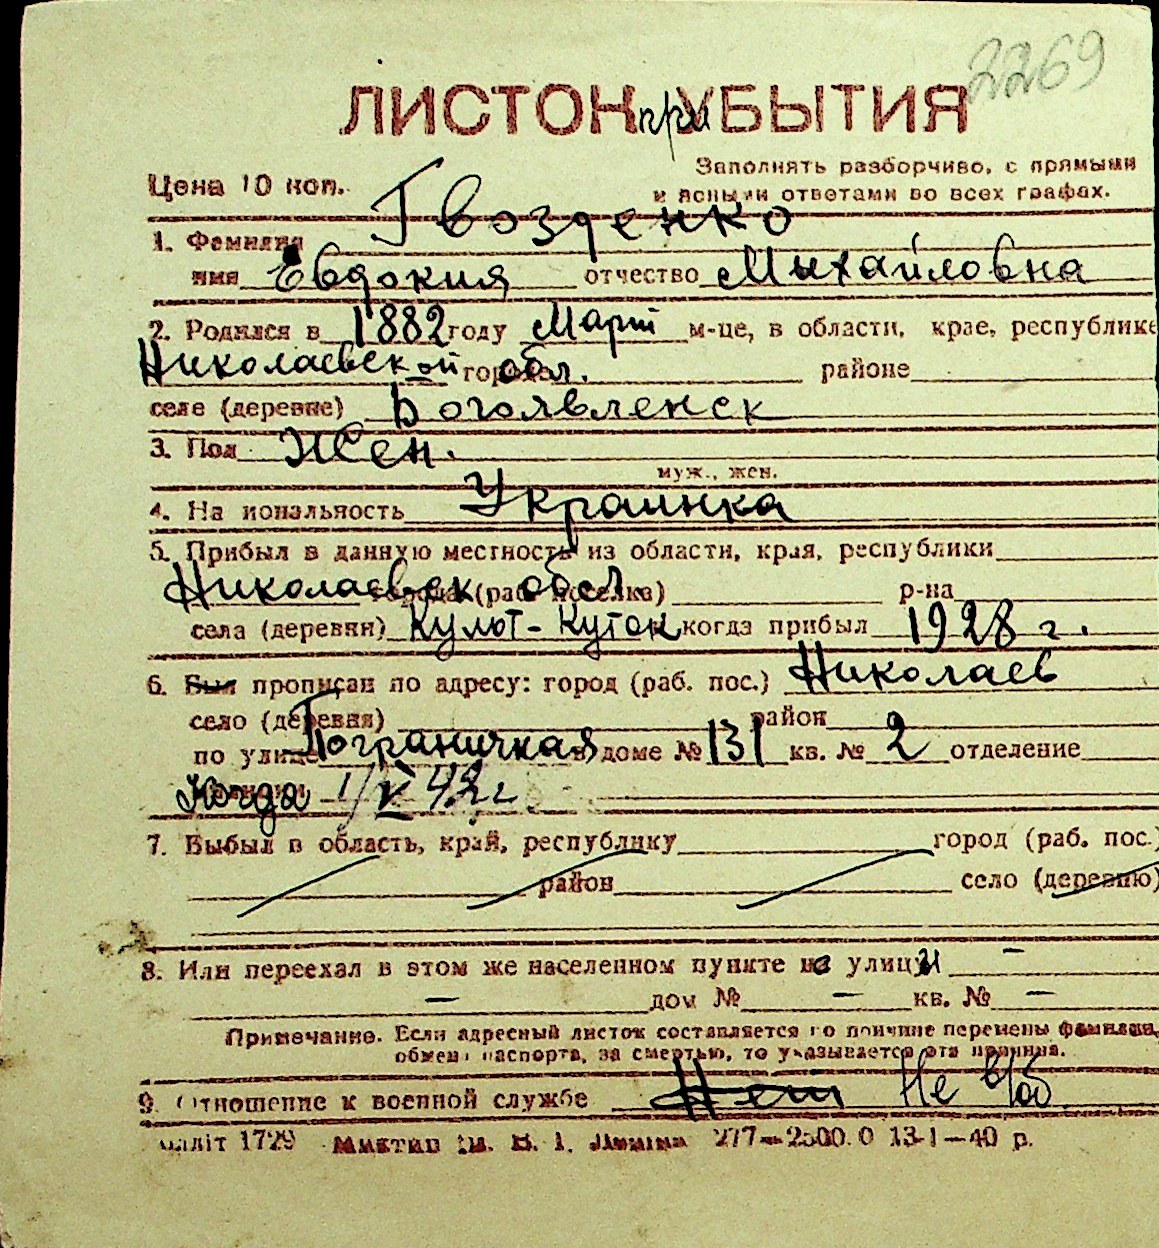 2269
ЛИСТОК при УБЫТИЯ
Заполнять разборчиво, с прямыми
Цена 10 коп. и ясными ответами во всех графах.
1. Фамилия Гвозденко
имя Евдокия отчество Михайловна
2. Родился в 1882 году Март м-це, в области, крае, республике
Николаевской обл. районе
селе (деревне) Богоявленск
3. Пол Жен.
муж., жен.
4. Национальность Украинка
5. Прибыл в данную местность из области, края, республики
Николаевск. обл. города (раб. поселка) р-на
села (деревни) Кульот-Куток когда прибыл 1928 г.
6. Был прописан по адресу: город (раб. пос.) Николаев
село (деревня) район
по улице Пограничкая в доме № 131 кв. № 2 отделение
Когда 1/V 42 г
7. Выбыл в область, край, республику город (раб. пос.)
район село (деревню)
8. Или переехал в этом же населенном пункте на улицу —
— дом № — кв. № —
Примечание. Если адресный листок составляется по причине перемены фамилии,
обмена паспорта, за смертью, то указывается эта причина.
9. Отношение к военной службе Нет Не в/об
Облліт 1729 277—2500.0 13-1—40 р.